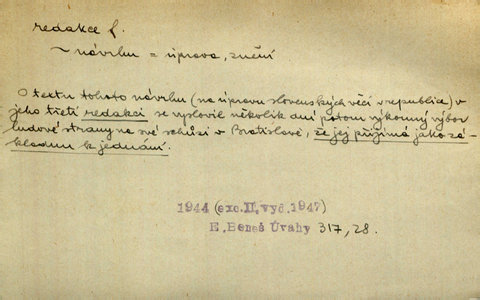 redakce f.
~ návrhu = úprava, znění
O textu tohoto návrhu (na úpravu slovenských věcí v republice) v
jeho třetí redakci se vyslovil několik dní potom výkonný výbor
ludové strany na své schůzi v Bratislavě, že jej přijímá jako zá-
kladnu k jednání.
1944 (exc.II.vyd.1947)
E.Beneš Úvahy 317,28.